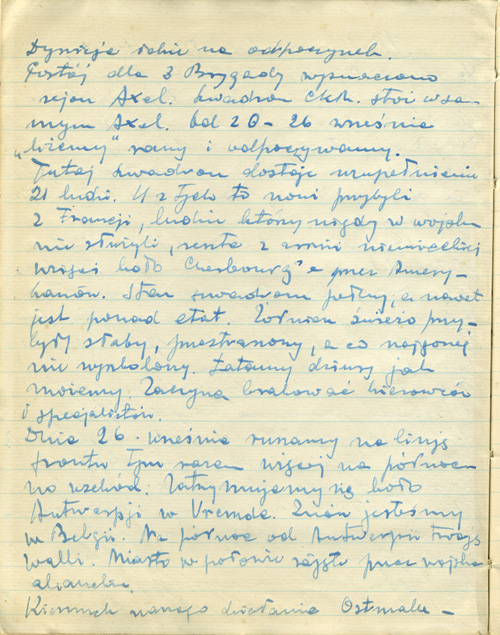 Dywizja idzie na odpoczynek.
Postój dla 3 Brygady wyznaczono
rejon Axel. Szwadron Ckm. stoi w sa-
mym Axel. Od 20-26 września
„liżemy" rany i odpoczywamy.
Tutaj szwadron dostaje uzupełnienie
21 ludzi. 4 z tych to nowi przybyli
z Francji, ludzie którzy nigdy w wojsku
nie służyli, reszta z armii niemieckiej
wzięci koło Cherbourg'a przez Amery-
kanów. Stan szwadronu pełny, a nawet
jest ponad etat. Żołnierz świeżo przy-
były słaby, przestraszony, a co najgorzej
nie wyszkolony. Łatamy dziury jak
możemy. Zaczyna brakować kierowców
i specjalistów.
Dnia 26. września ruszamy na linję
frontu tym razem więcej na północ
na wschód. Zatrzymujemy się koło
Antwerpji w Vremde. Znów jesteśmy
w Belgii. Na północ od Antwerpii trwają
walki. Miasto w połowie zajęte przez wojska
alianckie.
Kierunek naszego działania Ostmalle –